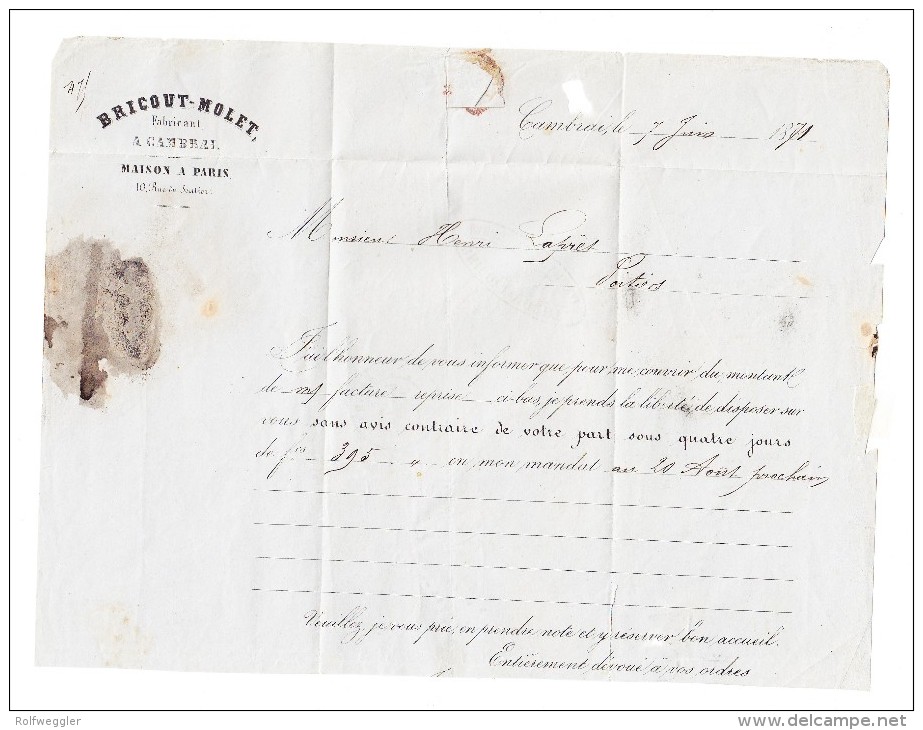 BRICOUT-MOLET,
Fabricant
A CAMBRAI.
MAISON A PARIS
10, Rue du Sentier.
Cambrai, le 7 Juin 1871
Monsieur Henri
Poitiers
J'ai l'honneur de vous informer que pour me couvrir du montant
de ma facture reprise ci-bas, je prends la liberté de disposer sur
vous sans avis contraire de votre part sous quatre jours
de fcs 395 " en mon mandat au 20 Août prochain
Veuillez, je vous prie, en prendre note et y réserver bon accueil.
Entièrement dévoué à vos ordres
Rolfweggler
www.delcampe.net